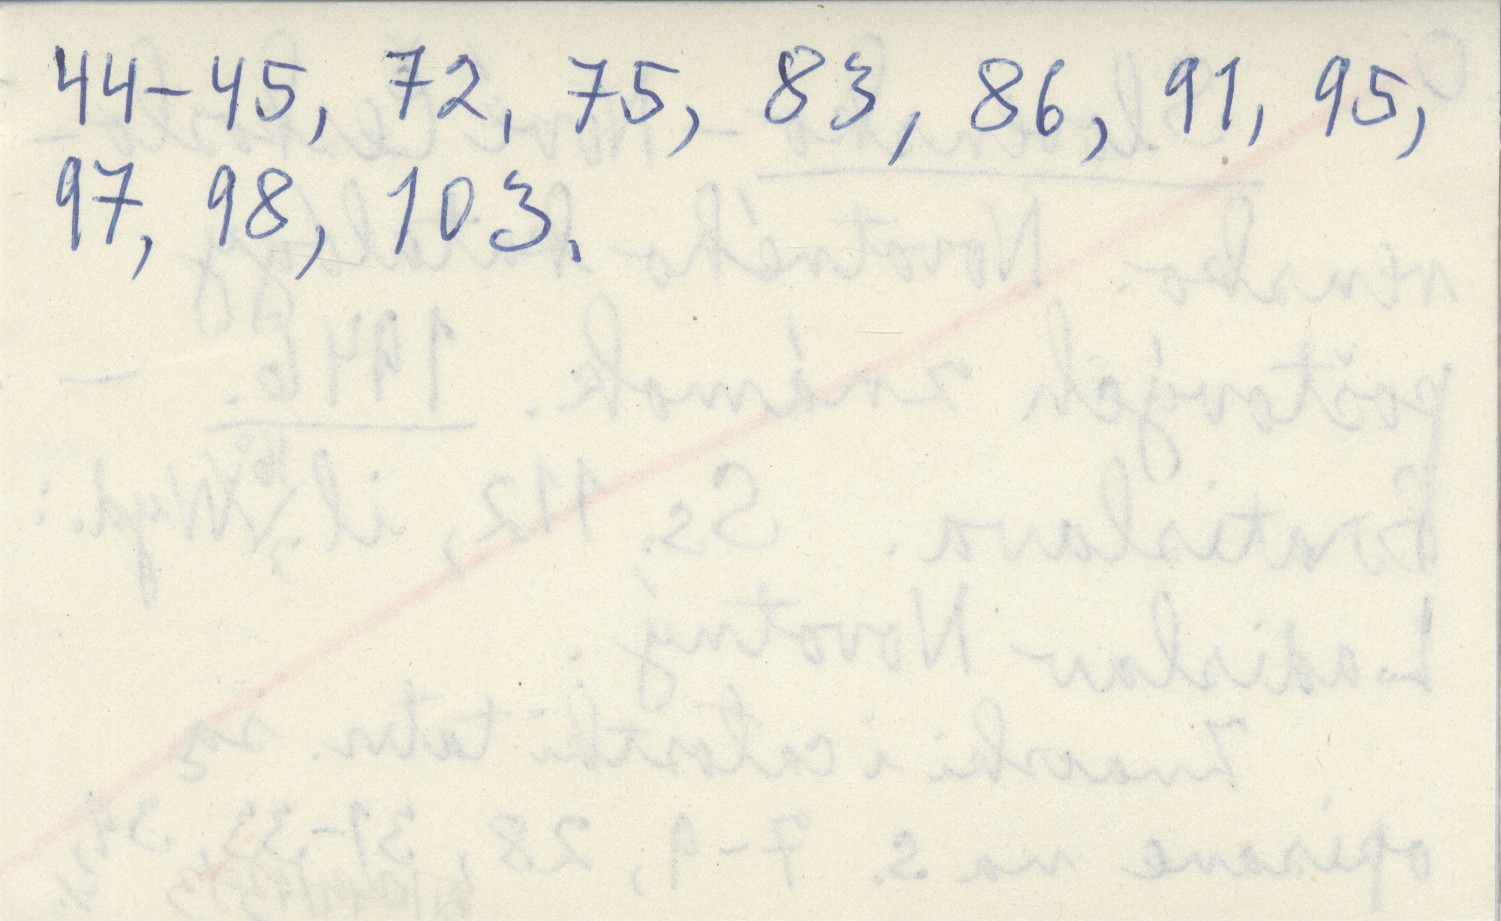 44-45, 72, 75, 83, 86, 91, 95,
97, 98, 103.